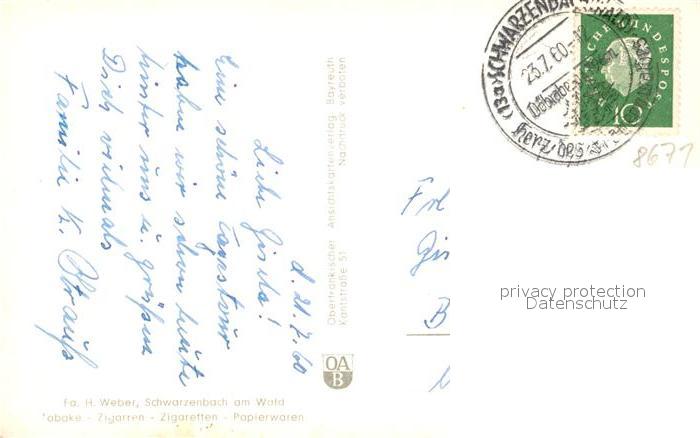 d. 21.7.60
Liebe Gisela!
Eine schöne Tagestour
haben wir schon heute
hinter uns u. grüßen
Dich vielmals
Familie K. Strauß
Oberfränkischer Ansichtskartenverlag Bayreuth
Kantstraße 51 Nachdruck verboten
OA
B
Fa. H. Weber, Schwarzenbach am Wald
Tabake - Zigarren - Zigaretten - Papierwaren
(13a) SCHWARZENBACH
23.7.60
Döbraberg
Herz des
DEUTSCHE BUNDESPOST
10
8671
Frl
Gis
B
privacy protection
Datenschutz